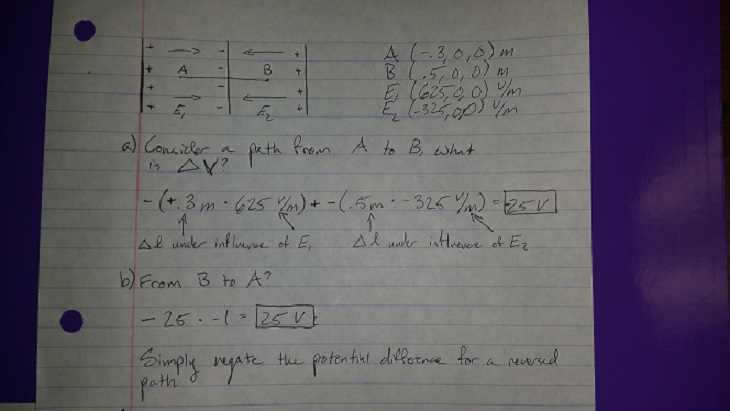 + → - ← + A (-.3, 0, 0) m
+ A - B + B (.5, 0, 0) m
+ → - ← + E₁ (625, 0, 0) V/m
+ E₁ - E₂ + E₂ (-325, 0, 0) V/m
a) Consider a path from A to B, what
is ΔV?
-(+.3m · 625 V/m) + -(.5m · -325 V/m) = -25 V
Δl under influence of E₁ Δl under influence of E₂
b) From B to A?
-25 · -1 = 25 V
Simply negate the potential difference for a reversed
path